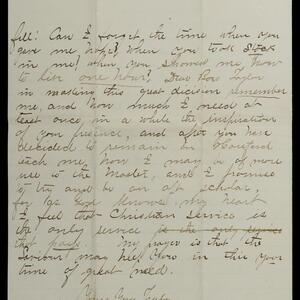 fill: Can I forget the time when you
gave me hope, when you took stock
in me, when you showed me how
to live one hour? Dear Bro Taylor
in making this great decision remember
me, and how much I need at
least once in a while the inspiration
of your presence, and after you have
decided to remain
each me how I may be of more
use to the Master, and I promise
to try and be an apt scholar,
for as God knows my heart
I feel that Christian service is
the only service is the only service
that pays. My prayer is that the
Saviour may help you in this your
time of great need.
Yours